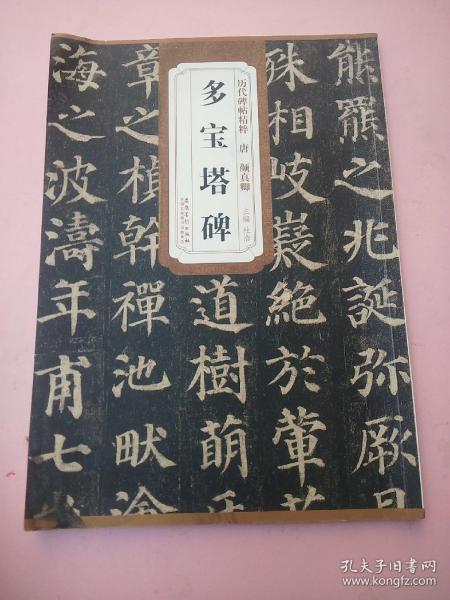 历代碑帖精粹 唐 颜真卿
多宝塔碑
主编 杜浩
安徽美术出版社
熊羆之兆誕弥厥月
殊相岐嶷絕於葷
道樹萌
章之楨幹禪池畎澮
海之波濤年甫七
孔夫子旧书网
www.kongfz.com